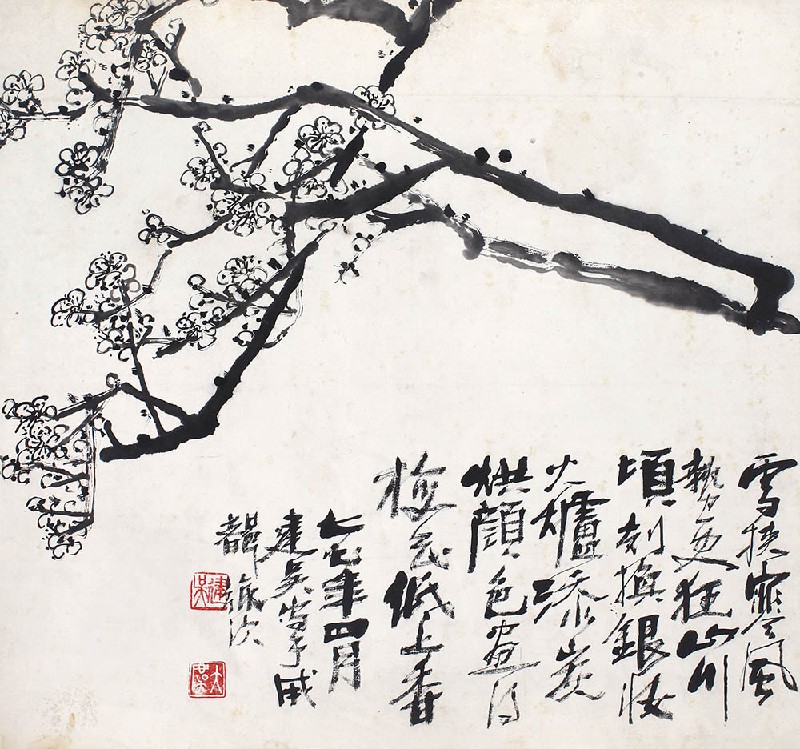 雪挟寒風
勢更狂山川
頃刻換銀妝
火爐添炭
烘顏色畫得
梅花紙上香
七七年四月
建吳成
都旅次
建吳